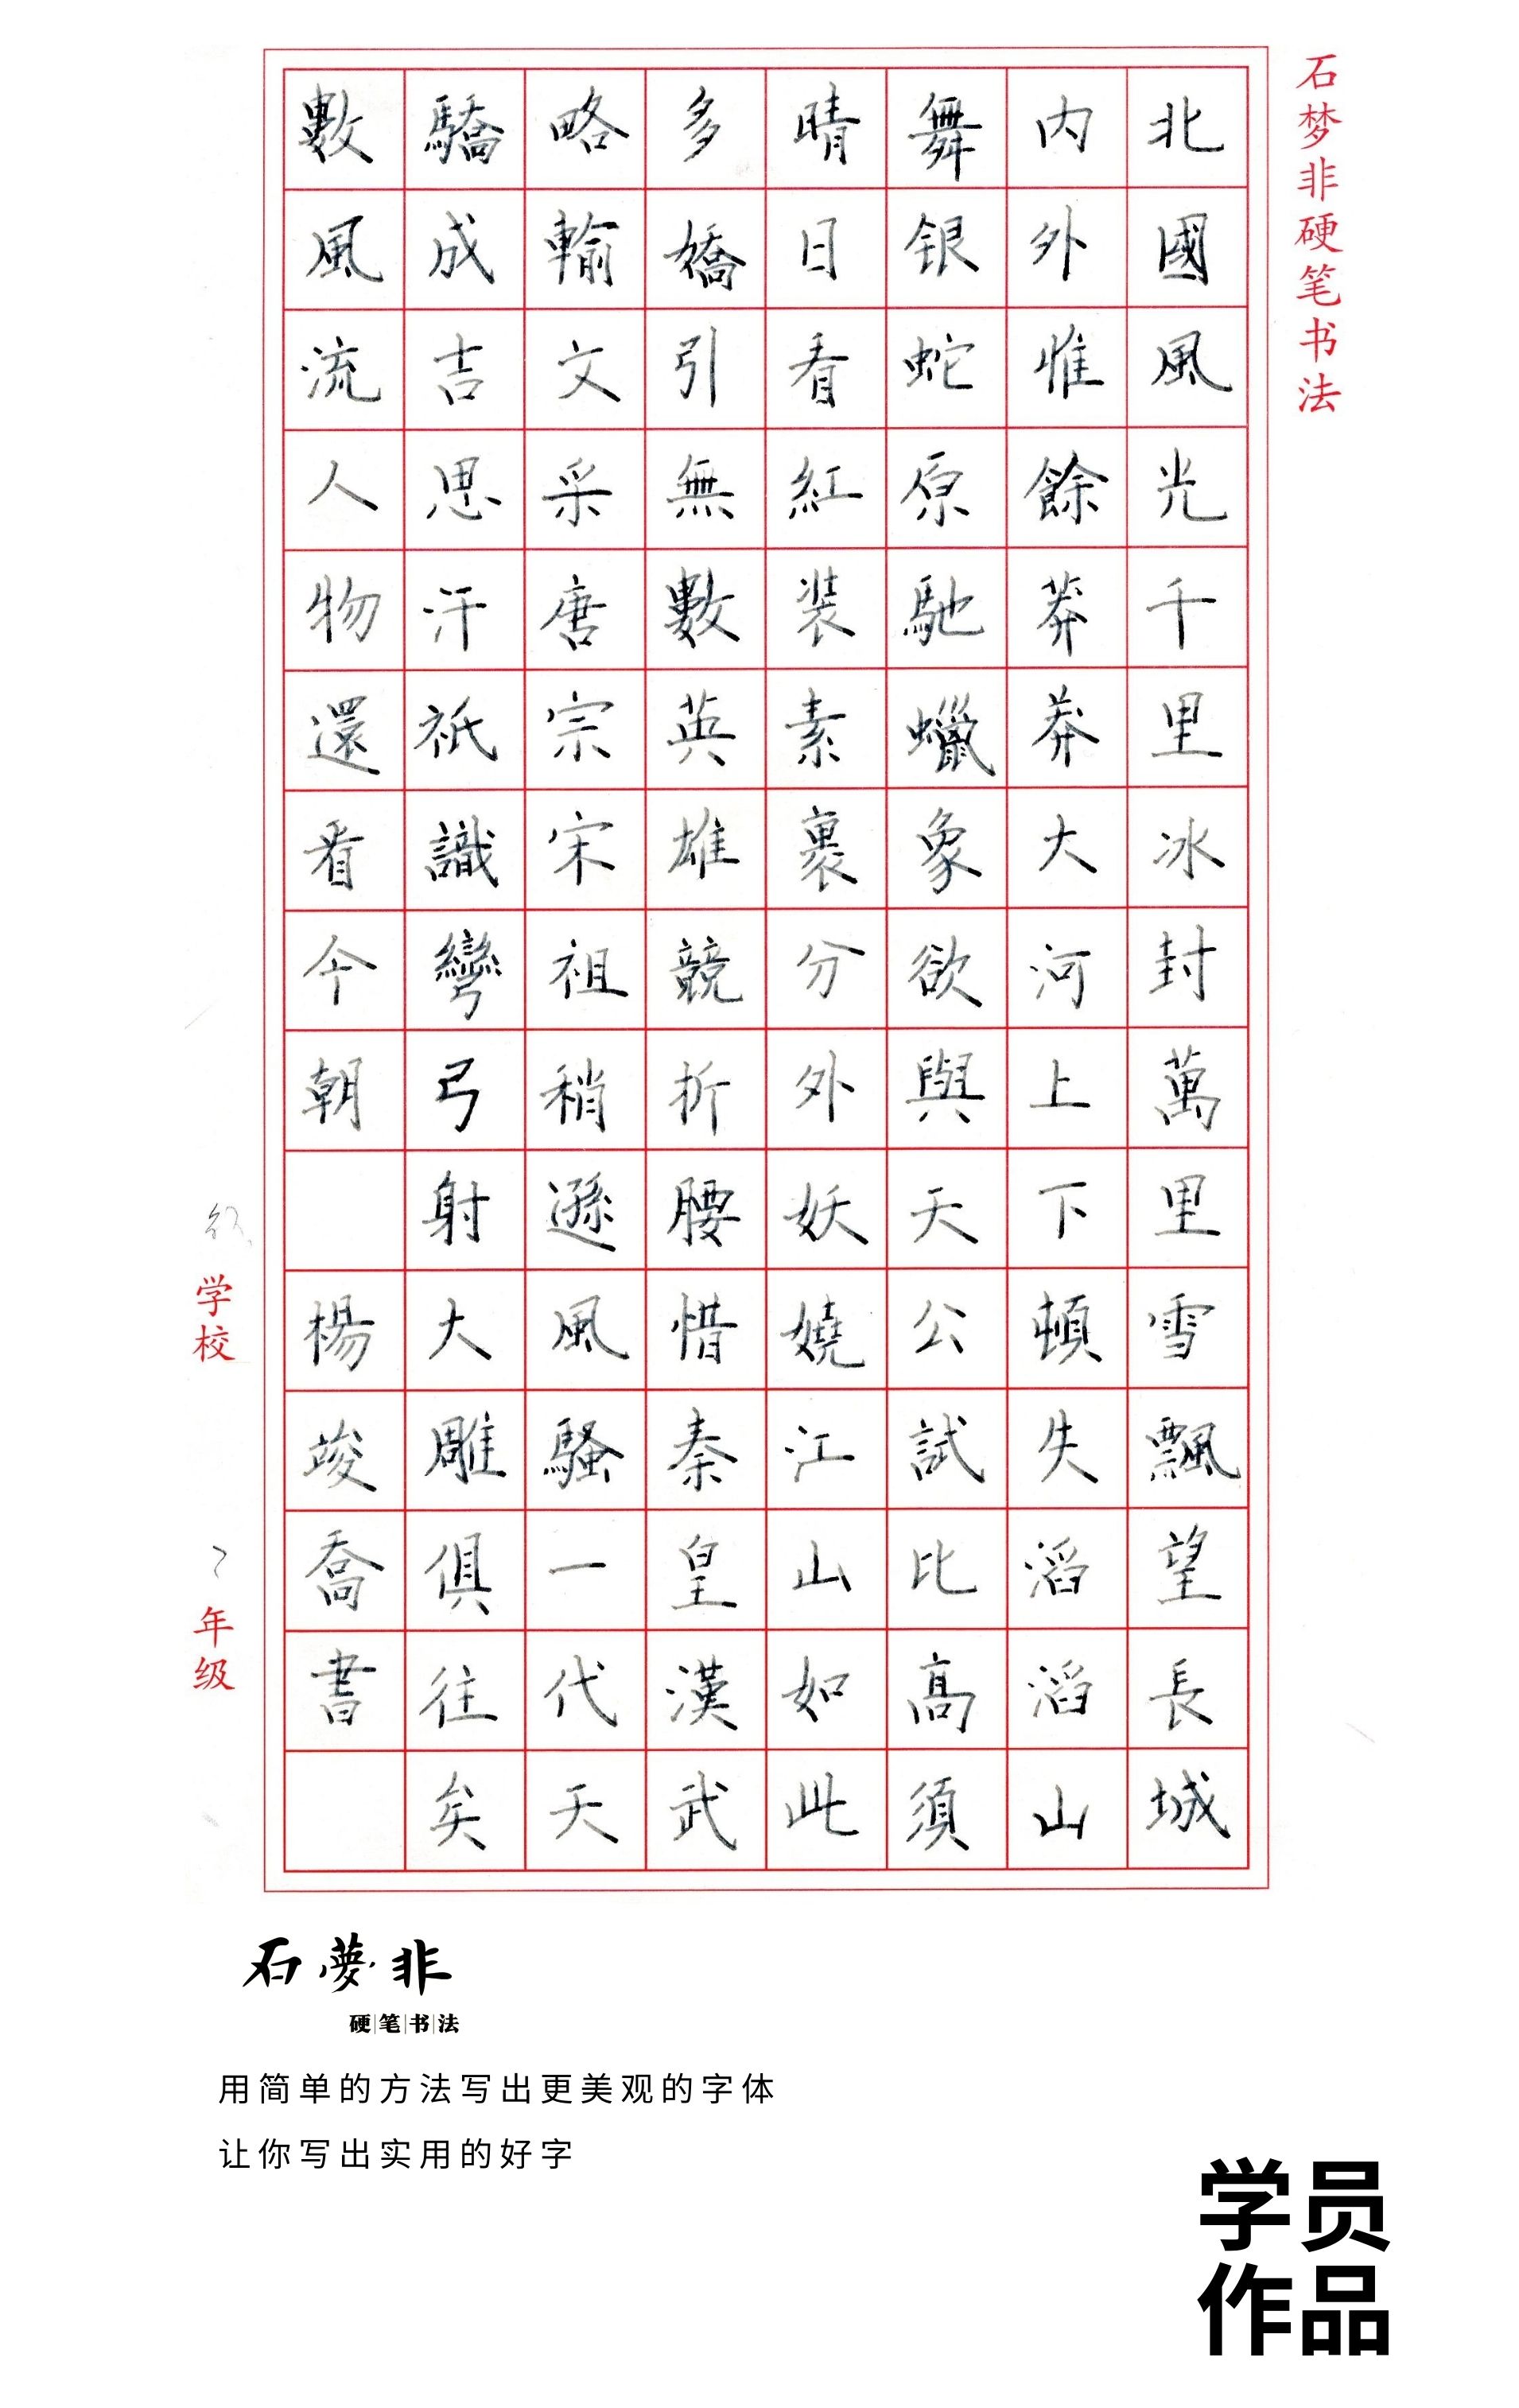 石梦非硬笔书法
北國風光千里冰封萬里雪飄望長城
内外惟餘莽莽大河上下頓失滔滔山
舞银蛇原馳蠟象欲與天公試比高須
晴日看紅装素裹分外妖嬈江山如此
多嬌引無數英雄競折腰惜秦皇漢武
略輸文采唐宗宋祖稍遜風騷一代天
驕成吉思汗祇識彎弓射大雕俱往矣
數風流人物還看今朝 楊竣喬書
学校
年级
石夢非
硬笔书法
用简单的方法写出更美观的字体
让你写出实用的好字
学员
作品